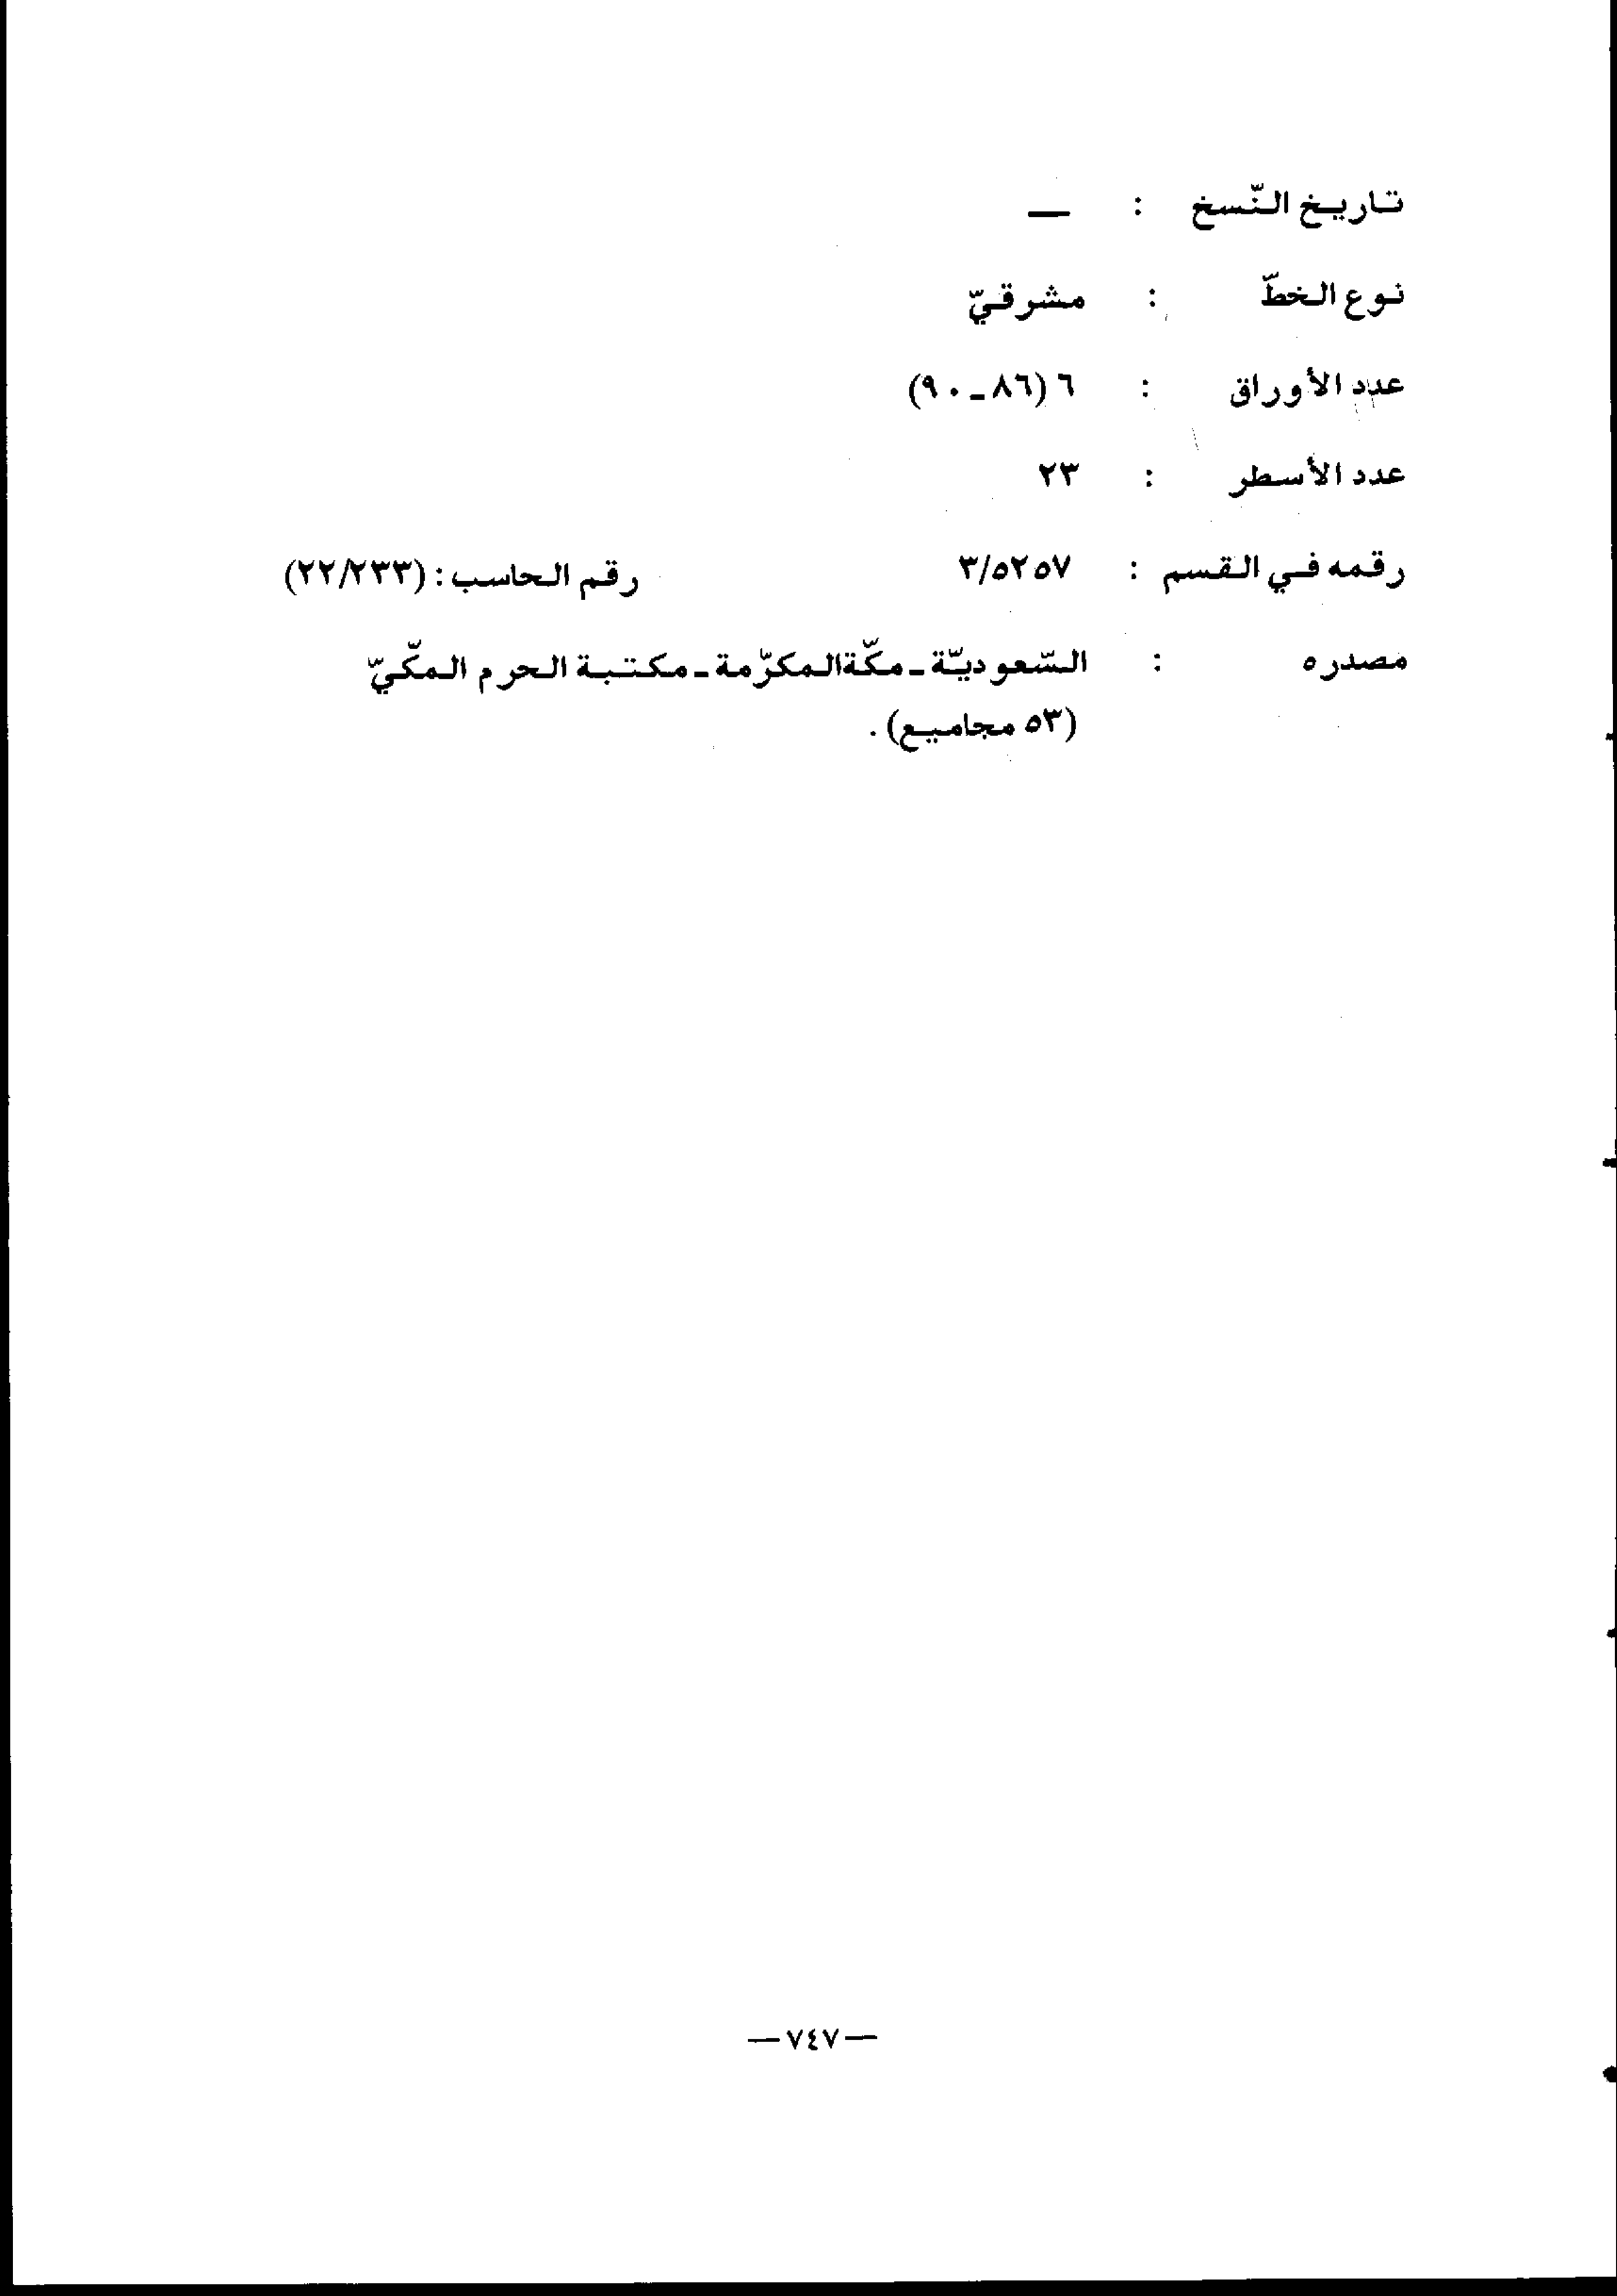 تاريخ النّسخ : —
نوع الخطّ : مشرقيّ
عدد الأوراق : ٦ (٨٦ـ٩٠)
عدد الأسطر : ٢٣
رقمه في القسم : ٣/٥٢٥٧ رقم الحاسب : (٢٢/٢٣٣)
مصدره : السّعوديّة ـ مكّة المكرّمة ـ مكتبة الحرم المكّيّ
(٥٣ مجاميع) .
— ٧٤٧ —